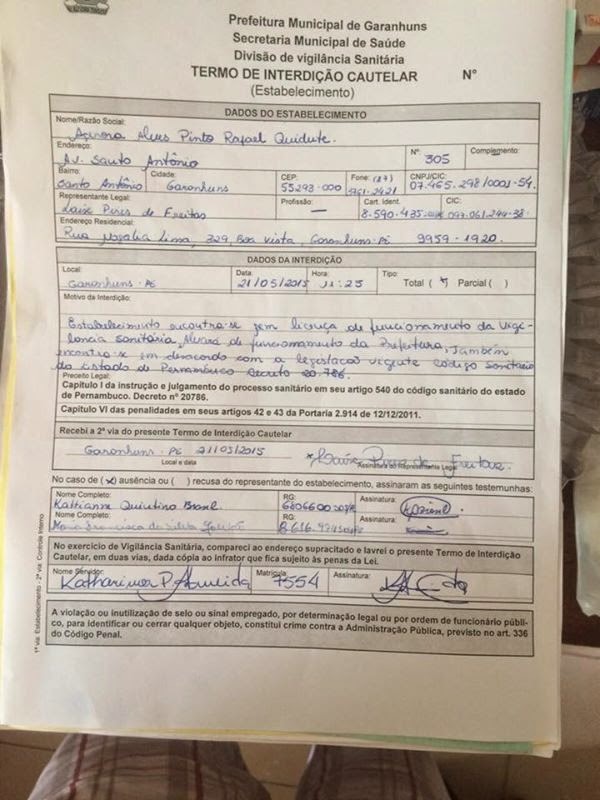 Prefeitura Municipal de Garanhuns
Secretaria Municipal de Saúde
Divisão de vigilância Sanitária
TERMO DE INTERDIÇÃO CAUTELAR Nº
(Estabelecimento)
DADOS DO ESTABELECIMENTO
Nome/Razão Social:
Alves Pinto Rafael Quidute.
Endereço: Nº: Complemento:
Av. Santo Antônio 305
Bairro: Cidade: CEP: Fone: (87) CNPJ/CIC:
Santo Antônio Garanhuns 55293-000 3761-2421 07.465.298/0001-54.
Representante Legal: Profissão: Cart. Ident. CIC:
Laíse Peres de Freitas — 8.590.435
Endereço Residencial:
Rua Lima, 329, Boa Vista, Garanhuns-PE 9959-1920.
DADOS DA INTERDIÇÃO
Local: Data: Hora: Tipo:
Garanhuns-PE 21/05/2015 11:25 Total ( ) Parcial ( )
Motivo da Interdição:
Estabelecimento encontra-se sem licença de funcionamento da Vigi-
lância sanitária, Alvará de funcionamento da Prefeitura, Também
encontra-se em desacordo com a legislação vigente Código Sanitário
do Estado de Pernambuco Decreto 20.786.
Preceito Legal:
Capítulo I da instrução e julgamento do processo sanitário em seu artigo 540 do código sanitário do estado
de Pernambuco. Decreto nº 20786.
Capítulo VI das penalidades em seus artigos 42 e 43 da Portaria 2.914 de 12/12/2011.
Recebi a 2ª via do presente Termo de Interdição Cautelar
Garanhuns-PE 21/05/2015 Freitas.
Local e data Assinatura do Representante Legal
No caso de (x) ausência ou ( ) recusa do representante do estabelecimento, assinaram as seguintes testemunhas:
Nome Completo: RG: Assinatura:
Kattianne Quintino Brasil 6806600
Nome Completo: RG: Assinatura:
Maria Francisca da Silva
No exercício de Vigilância Sanitária, compareci ao estabelecimento supracitado e lavrei o presente Termo de Interdição
Cautelar, em duas vias, dada cópia ao Infrator que fica sujeito às penas da Lei.
Nome Servidor: Matrícula: Assinatura:
P. Almeida 7554
A violação ou inutilização de selo ou sinal empregado, por determinação legal ou por ordem de funcionário públi-
co, para identificar ou cerrar qualquer objeto, constitui crime contra a Administração Pública, previsto no art. 336
do Código Penal.
1ª via: Estabelecimento - 2ª via: Controle Interno